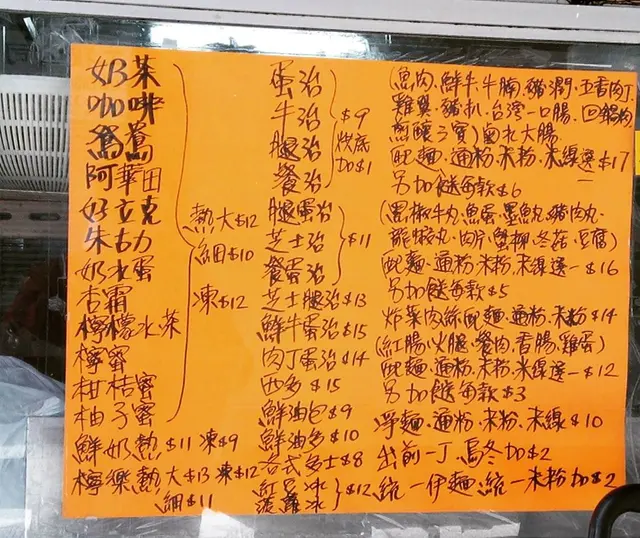 奶茶
咖啡
鴛鴦
阿華田
好立克
朱古力
奶水蛋
杏霜
檸檬水·茶
檸蜜
柑桔蜜
柚子蜜
熱大$12
細$10
凍$12
鮮奶熱$11 凍$9
檸樂熱大$13 凍$12
細$11
蛋治
牛治
腿治
餐治
$9
烘底
加$1
腿蛋治
芝士治
餐蛋治
$11
芝士腿治$13
鮮牛蛋治$15
肉丁蛋治$14
西多$15
鮮油包$9
鮮油多$10
占式多士$8
紅豆冰
菠蘿冰
$12
(魚肉·鮮牛·牛腩·豬潤·五香肉丁
雞翼·豬扒·台灣一口腸·回鍋肉
煎釀三寶)國水大腸
配麵·通粉·米粉·米線選一$17
另加餸每款$6
(黑椒牛丸·魚蛋·墨魚丸·豬肉丸·
龍蝦丸·肉片·蟹柳·冬菇·豆腐)
配麵·通粉·米粉·米線選一$16
另加餸每款$5
炸菜肉絲配麵·通粉·米粉$14
(紅腸·火腿·餐肉·香腸·雞蛋)
配麵·通粉·米粉·米線選一$12
另加餸每款$3
淨麵·通粉·米粉·米線$10
出前一丁·烏冬加$2
統一伊麵·統一米粉加$2